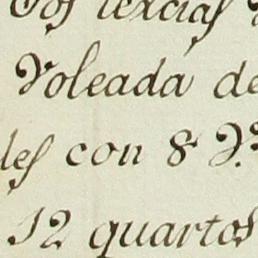 Dos tercias
Voleada de
les con 8 J.s
12 quartos